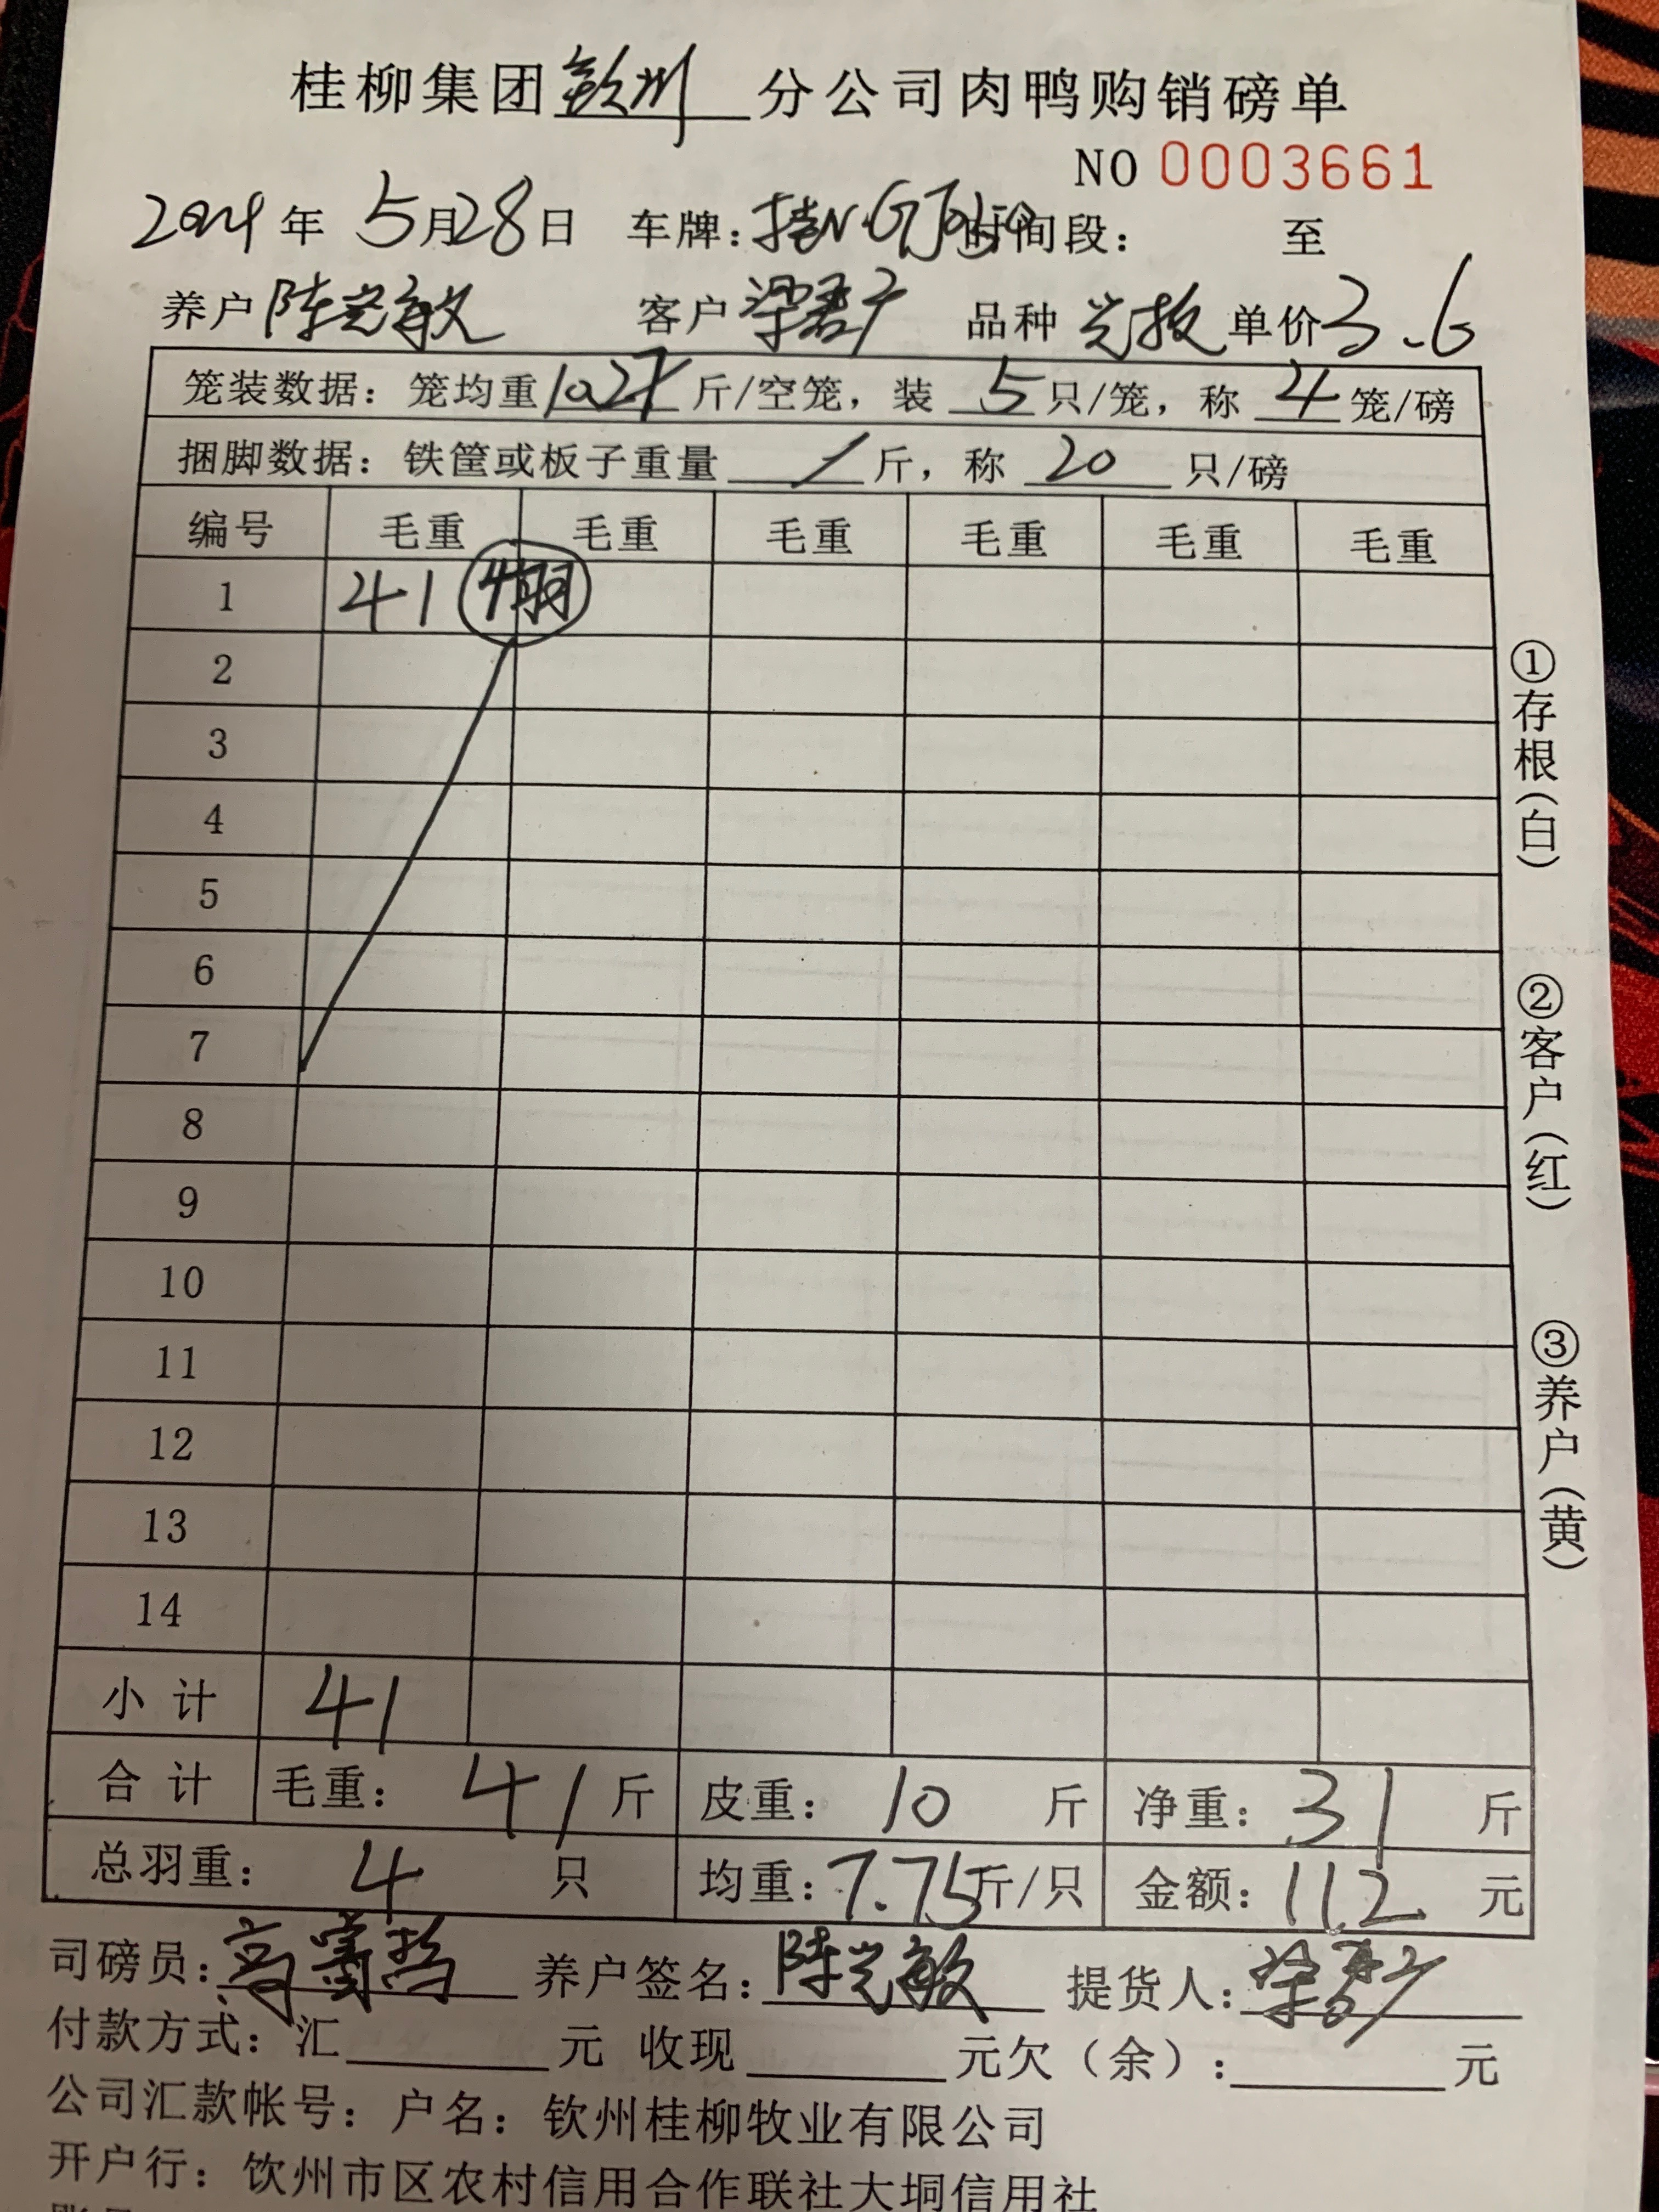 桂柳集团钦州分公司肉鸭购销磅单
NO 0003661
2024年 5月28日 车牌:桂N·G 时间段: 至
养户 陈光敏 客户 品种 光板 单价3.6
笼装数据:笼均重10.27斤/空笼,装 5 只/笼,称 4 笼/磅
捆脚数据:铁筐或板子重量 / 斤,称 20 只/磅
编号 毛重 毛重 毛重 毛重 毛重 毛重
1 41 4羽
2
3
4
5
6
7
8
9
10
11
12
13
14
小计 41
合计 毛重: 41 斤 皮重: 10 斤 净重: 31 斤
总羽重: 4 只 均重:7.75斤/只 金额:112 元
司磅员: 养户签名:陈光敏 提货人:
付款方式:汇 元 收现 元欠(余): 元
公司汇款帐号:户名:钦州桂柳牧业有限公司
开户行:钦州市区农村信用合作联社大垌信用社
①存根(白)
②客户(红)
③养户(黄)